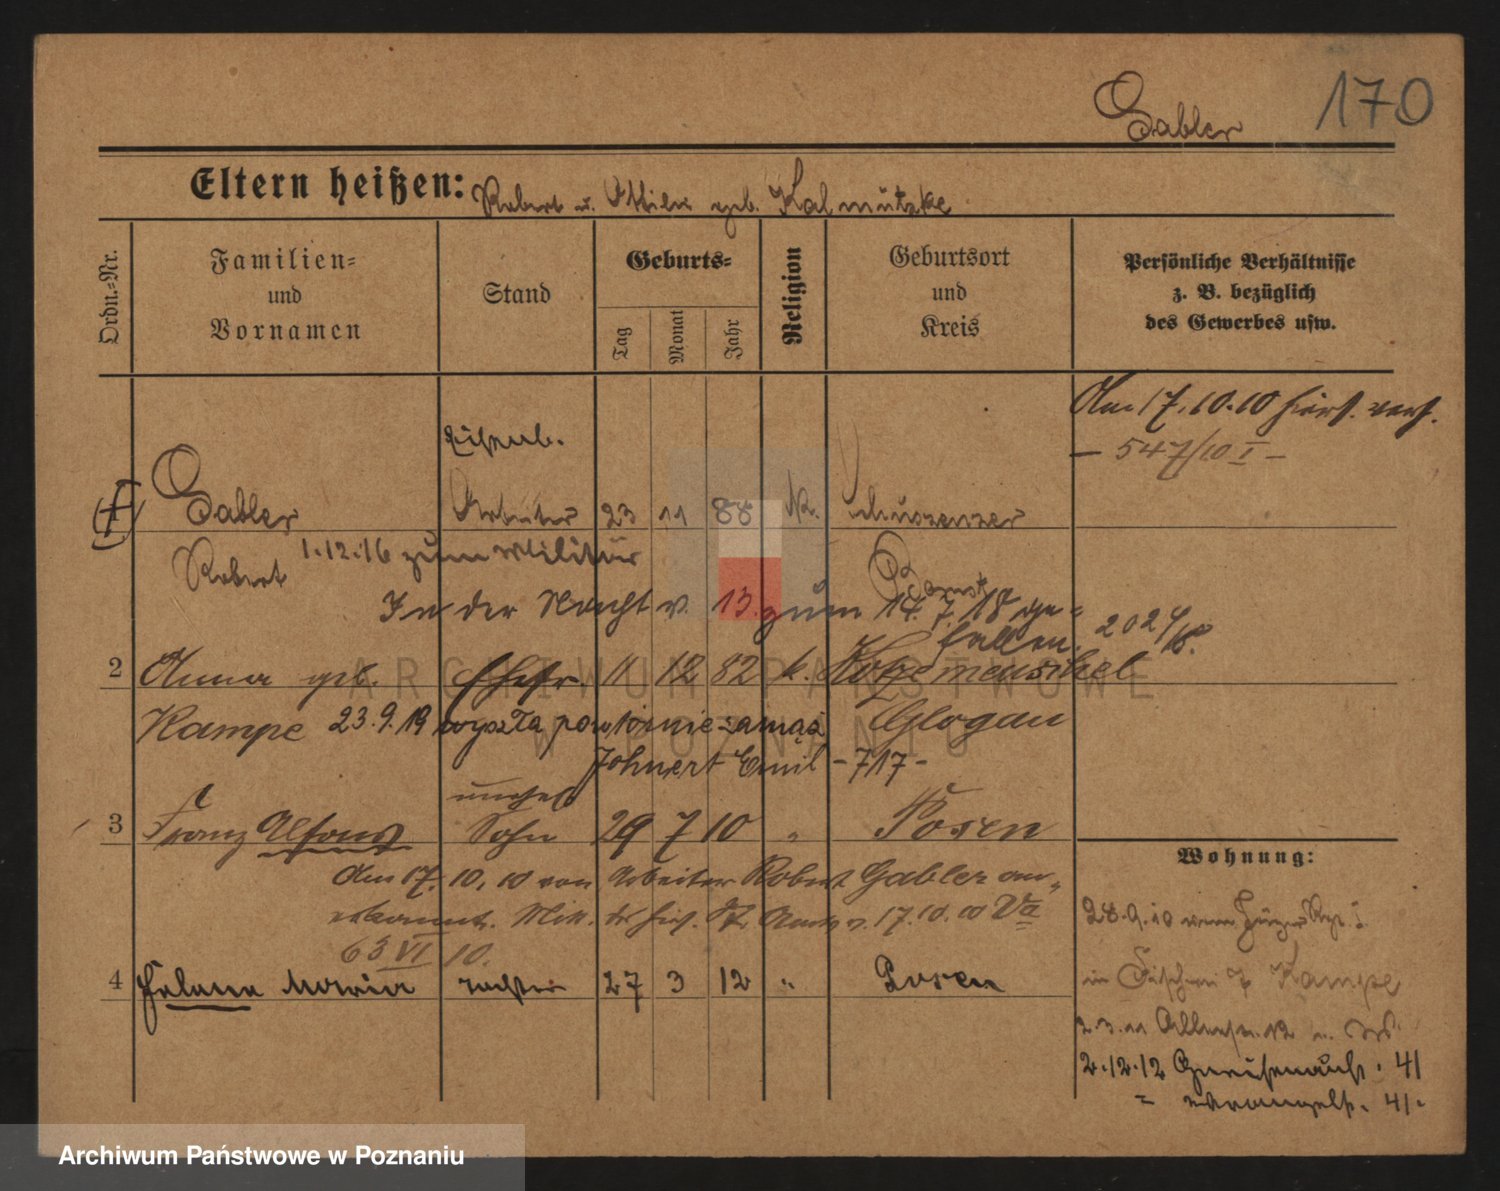 Gabler 170
Eltern heißen: Robert u. Ottilie geb. Kalmützke
Ordn.-Nr.
Familien-
und
Vornamen
Stand
Geburts-
Tag
Monat
Jahr
Religion
Geburtsort
und
Kreis
Persönliche Verhältnisse
z. B. bezüglich
des Gewerbes usw.
Am 17.10.10
- 547/10 I -
Eisenb.
1 Gabler Arbeiter 23 11 88 k.
Robert 1.12.16 zum Militär
Bomst
In der Nacht v. 13. zum 14. 7. 18 ge-
fallen. 2024/18.
2 Anna geb. Ehefr. 11 12 82 k.
Kampe 23.9.19 wyszła powtórnie zamąż Glogau
Johnert Emil - 717 -
unehel
3 Franz Alfons Sohn 29 7 10 " Posen
Am 17. 10. 10 von Arbeiter Robert Gabler an-
erkannt. 17.10.10 Va
63 VI 10.
4 Helene Maria Tochter 27 3 12 " Posen
Wohnung:
28.9.10
in Kampe
2.3.11
2.12.12 Gneisenaustr. 41
= 41.
ARCHIWUM PAŃSTWOWE
W POZNANIU
Archiwum Państwowe w Poznaniu